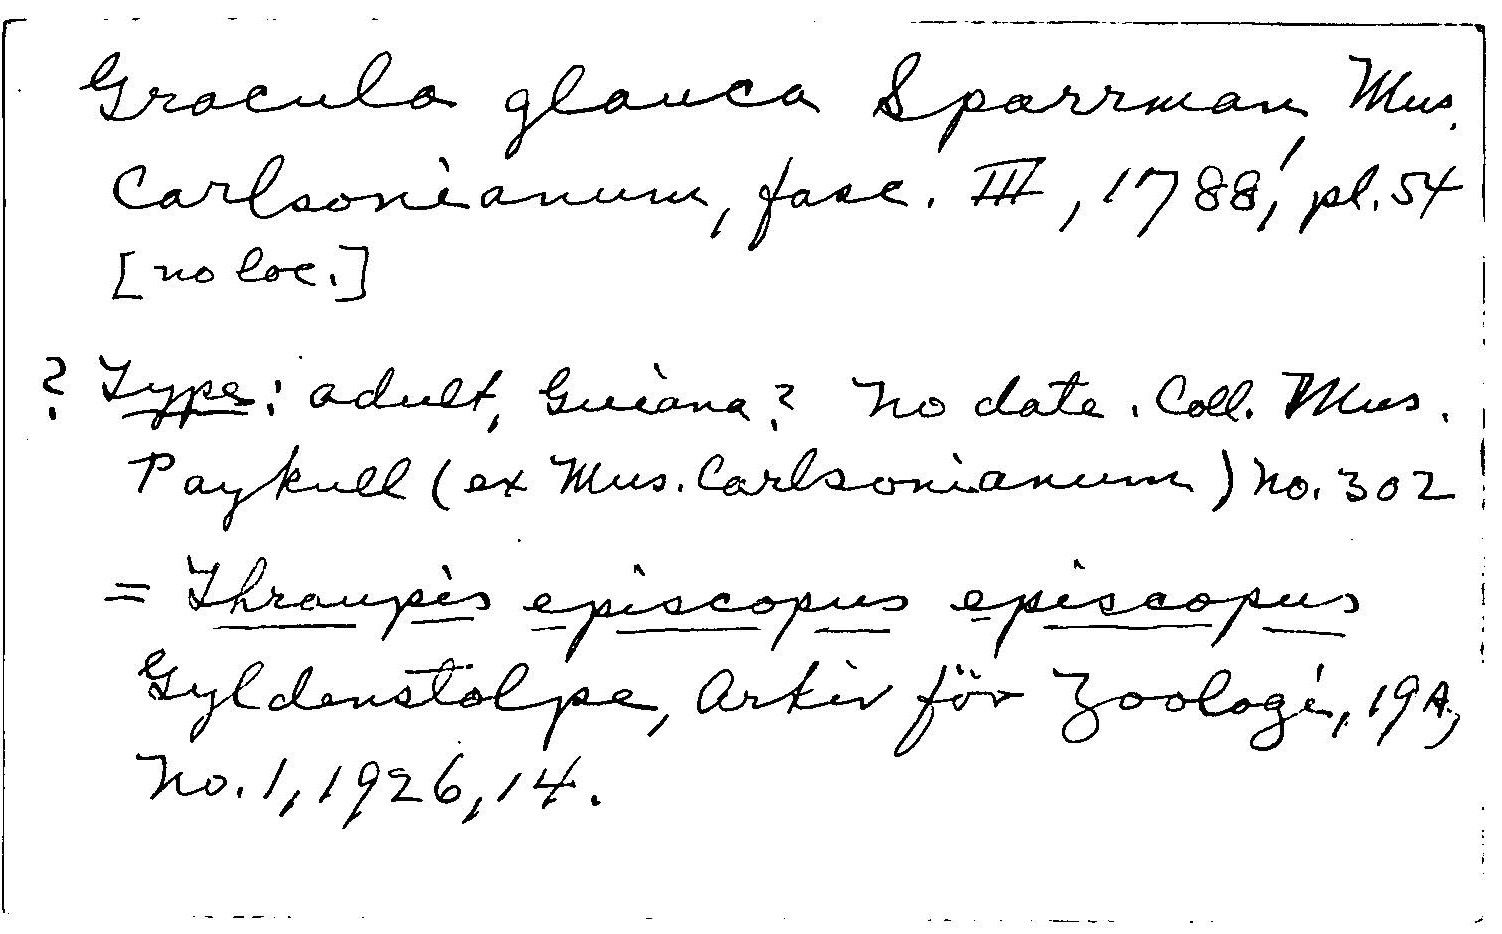 Gracula glauca Sparrman, Mus.
Carlsonianum, fasc. III, 1788, pl. 54
[no loc.]
? Type: adult, Guiana? No date. Coll. Mus.
Paykull (ex Mus. Carlsonianum) No. 302
= Thraupis episcopus episcopus
Gyldenstolpe, Arkiv för Zoologi, 19A,
No. 1, 1926, 14.